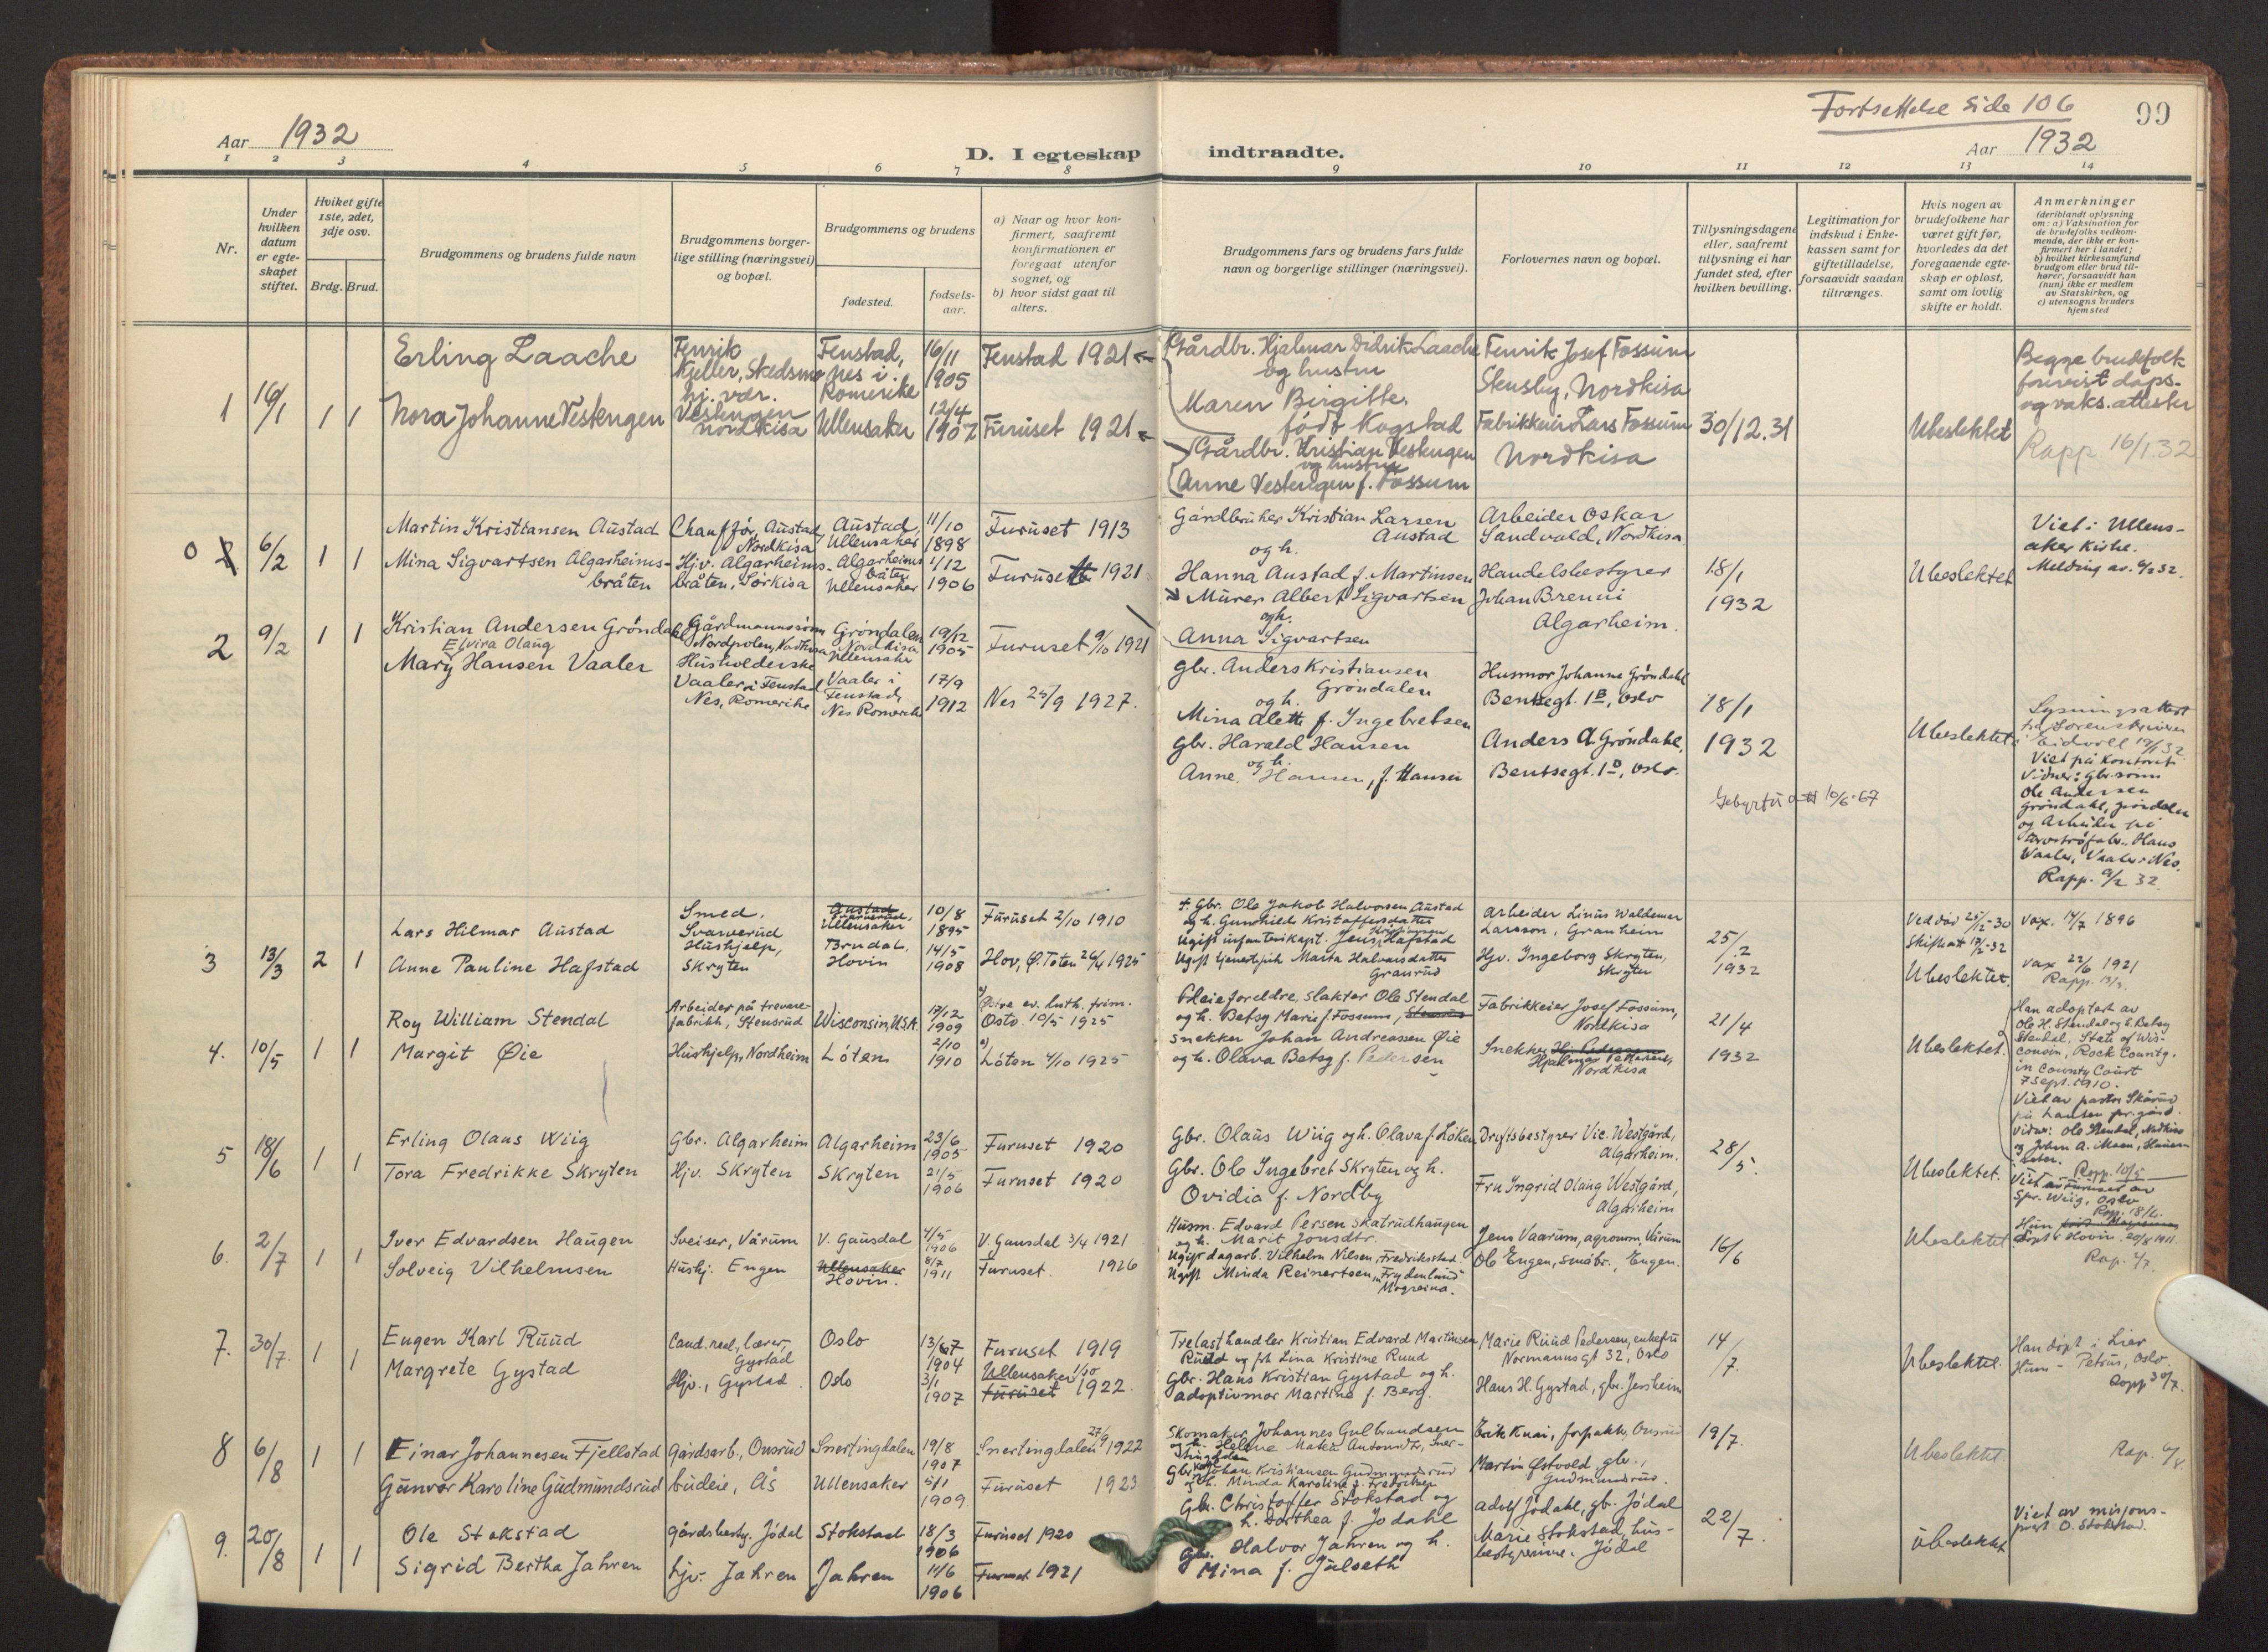 Fortsettelse side 106
99
Aar 1932
D. I egteskap indtraadte.
Aar 1932
1 2 3 4 5 6 7 8 9 10 11 12 13 14
Nr.
Under hvilken datum er egteskapet stiftet.
Hvilket gifte 1ste, 2det, 3dje osv.
Brdg.
Brud.
Brudgommens og brudens fulde navn
Brudgommens borgerlige stilling (næringsvei) og bopæl.
Brudgommens og brudens
fødested.
fødsels-aar.
a) Naar og hvor konfirmert, saafremt konfirmationen er foregaat utenfor sognet, og
b) hvor sidst gaat til alters.
Brudgommens fars og brudens fars fulde navn og borgerlige stillinger (næringsvei).
Forlovernes navn og bopæl.
Tillysningsdagene eller, saafremt tillysning ei har fundet sted, efter hvilken bevilling.
Legitimation for indskud i Enkekassen samt for giftetilladelse, forsaavidt saadan tiltrænges.
Hvis nogen av brudefolkene har været gift før, hvorledes da det foregaaende egteskap er opløst, samt om lovlig skifte er holdt.
Anmerkninger
(deriblandt oplysning om: a) Vaksination for de brudefolks vedkommende, der ikke er konfirmert her i landet; b) hvilket kirkesamfund brudgom eller brud tilhører, forsaavidt han (hun) ikke er medlem av Statskirken, og c) utensogns bruders hjemsted
1 16/1 1 1
Erling Laache
Fenrik Kjeller, Skedsmo
Fenstad, Nes i Romerike
16/11 1905
Fenstad 1921
Nora Johanne Vestengen
hj. vær. Vestengen Nordkisa
Ullensaker
12/4 1907
Furuset 1921
Gårdbr. Hjalmar Didrik Laache
og hustru
Maren Birgitte,
født Kogstad
Gårdbr. Kristian Vestengen
og hustru
Anne Vestengen f. Fossum
Fenrik Josef Fossum
Stensby, Nordkisa
Fabrikkeier Lars Fossum
Nordkisa
30/12.31
Ubeslektet
Begge brudefolk
forevist dåps-
og vaks. attester
Rapp 16/1.32
0 2 6/2 1 1
Martin Kristiansen Austad
Chauffør, Austad, Nordkisa
Austad, Ullensaker
11/10 1898
Furuset 1913
Mina Sigvartsen Algarheims-
bråten
Hjv. Algarheims-
bråten, Sörkisa
Algarheims
bråten
Ullensaker
1/12 1906
Furuset 1921
Gårdbruker Kristian Larsen
Austad
og h.
Hanna Austad f. Martinsen
Murer Albert Sigvartsen
og h.
Anna Sigvartsen
Arbeider Oskar
Sandvold, Nordkisa
Handelsbestyrer
Johan Brenni
Algarheim.
18/1 1932
Ubeslektet
Viet i Ullens-
aker kirke.
Melding av 6/2 32.
2 9/2 1 1
Kristian Andersen Gröndahl
Gårdmannssönn
Nordpolen, Nordkisa
Gröndalen
Nordkisa
Ullensaker
19/12 1905
Furuset 9/10 1921
Elvira Olaug
Mary Hansen Vaaler
Husholderske
Vaaler i Fenstad
Nes, Romerike
Vaaler i
Fenstad,
Nes Romerike
17/9 1912
Nes 25/9 1927.
Gbr. Anders Kristiansen
Gröndalen
og h.
Mina Alette f. Ingebretsen
Gbr. Harald Hansen
og h.
Anne Hansen, f. Hansen
Husmor Johanne Gröndahl
Bentsegt. 1B, Oslo
Anders A. Gröndahl,
Bentsegt. 1B, Oslo.
18/1 1932
10/6-67
Ubeslektet
Lysningsattest
fra Sorenskriveren
i Eidsvoll
Viet på kontoret
Vidner: Gbr.sönn
Ole Andersen
Gröndahl, Gröndalen
og Arbeider på
Hans
Vaaler, Vaaler i Nes.
Rapp. 9/2 32.
3 13/3 2 1
Lars Hilmar Austad
Smed. Svarverud
Austad
Svarverud,
Ullensaker
10/8 1895
Furuset 2/10 1910
Anne Pauline Hafstad
Hushjelp, Skryten
Brudal, Hovin
14/5 1908
Hov, Ø. Toten 26/4 1925
f. Gbr. Ole Jakob Halvorsen Austad
og h. Gunhild Kristoffersdatter
Ugift infanterikapt. Jens Kristiansen Hafstad
Ugift tjenestepike Marta Halvorsdatter
Granrud
Arbeider Linus Waldemar
Larsson, Granheim
Hjv. Ingeborg Skryten,
Skryten
25/2 1932
Ved död 25/12-30
Skifteatt 17/2-32
Ubeslektet.
Vax. 14/7 1896
Vax 22/6 1921
Rapp. 13/3.
4. 10/5 1 1
Roy William Stendal
Arbeider på trevare-
fabrikk, Stensrud
Wisconsin, U.S.A.
17/12 1909
Østre ev. luth. frim.
Oslo 10/5 1925
Margit Øie
Hushjelp, Nordheim
Löten
2/10 1910
Löten 4/10 1925
Pleieforeldre, slakter Ole Stendal
og h. Betsy Marie f. Fossum, Stensrud
Snekker Johan Andreassen Øie
og h. Olava Betsy f. Pedersen
Fabrikkeier Josef Fossum,
Nordkisa
Snekker Hj. Pedersen
Hjalmar Pettersen,
Nordkisa
21/4 1932
Ubeslektet.
Han adoptert av
Ole H. Stendal og h. Betsy
Stendal, State of Wis-
consin, Rock County,
in County Court
7 Sept. 1910.
Viet av pastor Skårud
på Lausen pr.gård.
Vidner: Ole Stendal, Nordkisa
og Johan A. Moen,
Rapp. 10/5
5 18/6 1 1
Erling Olaus Wiig
Gbr. Algarheim
Algarheim
23/6 1905
Furuset 1920
Tora Fredrikke Skryten
Hjv. Skryten
Skryten
21/5 1906
Furuset 1920
Gbr. Olaus Wiig og h. Olava f. Löken
Gbr. Ole Ingebret Skryten og h.
Ovidia f. Nordby
Driftsbestyrer Vic. Westgård,
Algarheim.
Fru Ingrid Olaug Westgård,
Algarheim
28/5.
Ubeslektet.
Viet av Furuset av
Spr. Wiig, Oslo
Rapp. 18/6.
6. 2/7 1 1
Iver Edvardsen Haugen
Sveiser, Vårum
V. Gausdal
4/5 1906
V. Gausdal 3/4 1921
Solveig Vilhelmsen
Hushj. Engen
Ullensaker
Hovin.
8/7 1911
Furuset. 1926
Husm. Edvard Persen Skatrudhaugen
og h. Marit Jonsdtr.
Ugift dagarb. Vilhelm Nilsen, Fredrikstad
Ugift Minda Reinertsen, Frydenlund
Mogreina.
Jens Vaarum, agronom, Vårum
Ole Engen, småbr., Engen.
16/6
Ubeslektet
Hun
döpt i Hovin. 20/8 1911
Rap. 4/7.
7. 30/7. 1 1
Eugen Karl Ruud
Cand. real, lærer, Gystad
Oslo
13/7 1904
Furuset 1919
Margrete Gystad
Hjv., Gystad.
Oslo
3/1 1907
Ullensaker 1/10
Furuset 1922.
Trelasthandler Kristian Edvard Martinsen
Ruud og frk Lina Kristine Ruud
Gbr. Hans Kristian Gystad og h.
adoptivmor Martine f. Berg.
Marie Ruud Pedersen, enkefru
Normannsgt 32, Oslo
Hans H. Gystad, gbr. Jessheim
14/7.
Ubeslektet.
Han döpt i Lier
Hun - Petrus, Oslo.
Rapp 30/7.
8 6/8 1 1
Einar Johannesen Fjellstad
Gårdsarb., Onsrud
Snertingdalen
19/8 1907
Snertingdalen 27/9 1922
Gunvor Karoline Gudmundsrud
budeie, Ås
Ullensaker
5/1 1909
Furuset 1923
Skomaker Johannes Gulbrandsen
og h. Helene
Gbr. Johan Kristiansen Gudmundsrud
og h. Minda Karoline f. Fredriksen
Erik Knai, forpakter, Onsrud
Martin Østvold, gbr.,
Gudmundsrud.
19/7.
Ubeslektet.
Rap. 6/8.
9. 20/8 1 1
Ole Stokstad
gårdsbesty. Jödal
Stokstad
18/3 1906
Furuset 1920
Sigrid Bertha Jahren
hjv. Jahren
Jahren
11/6 1906
Furuset 1921
Gbr. Christoffer Stokstad og
h. Dorthea f. Jodahl
Gbr. Halvor Jahren og h.
Mina f. Julseth
Adolf Jödahl, gb. Jödal
Marie Stokstad, hus-
bestyrerinne. Jödal
22/7.
Ubeslektet
Viet av misjons-
prest O. Stokstad.